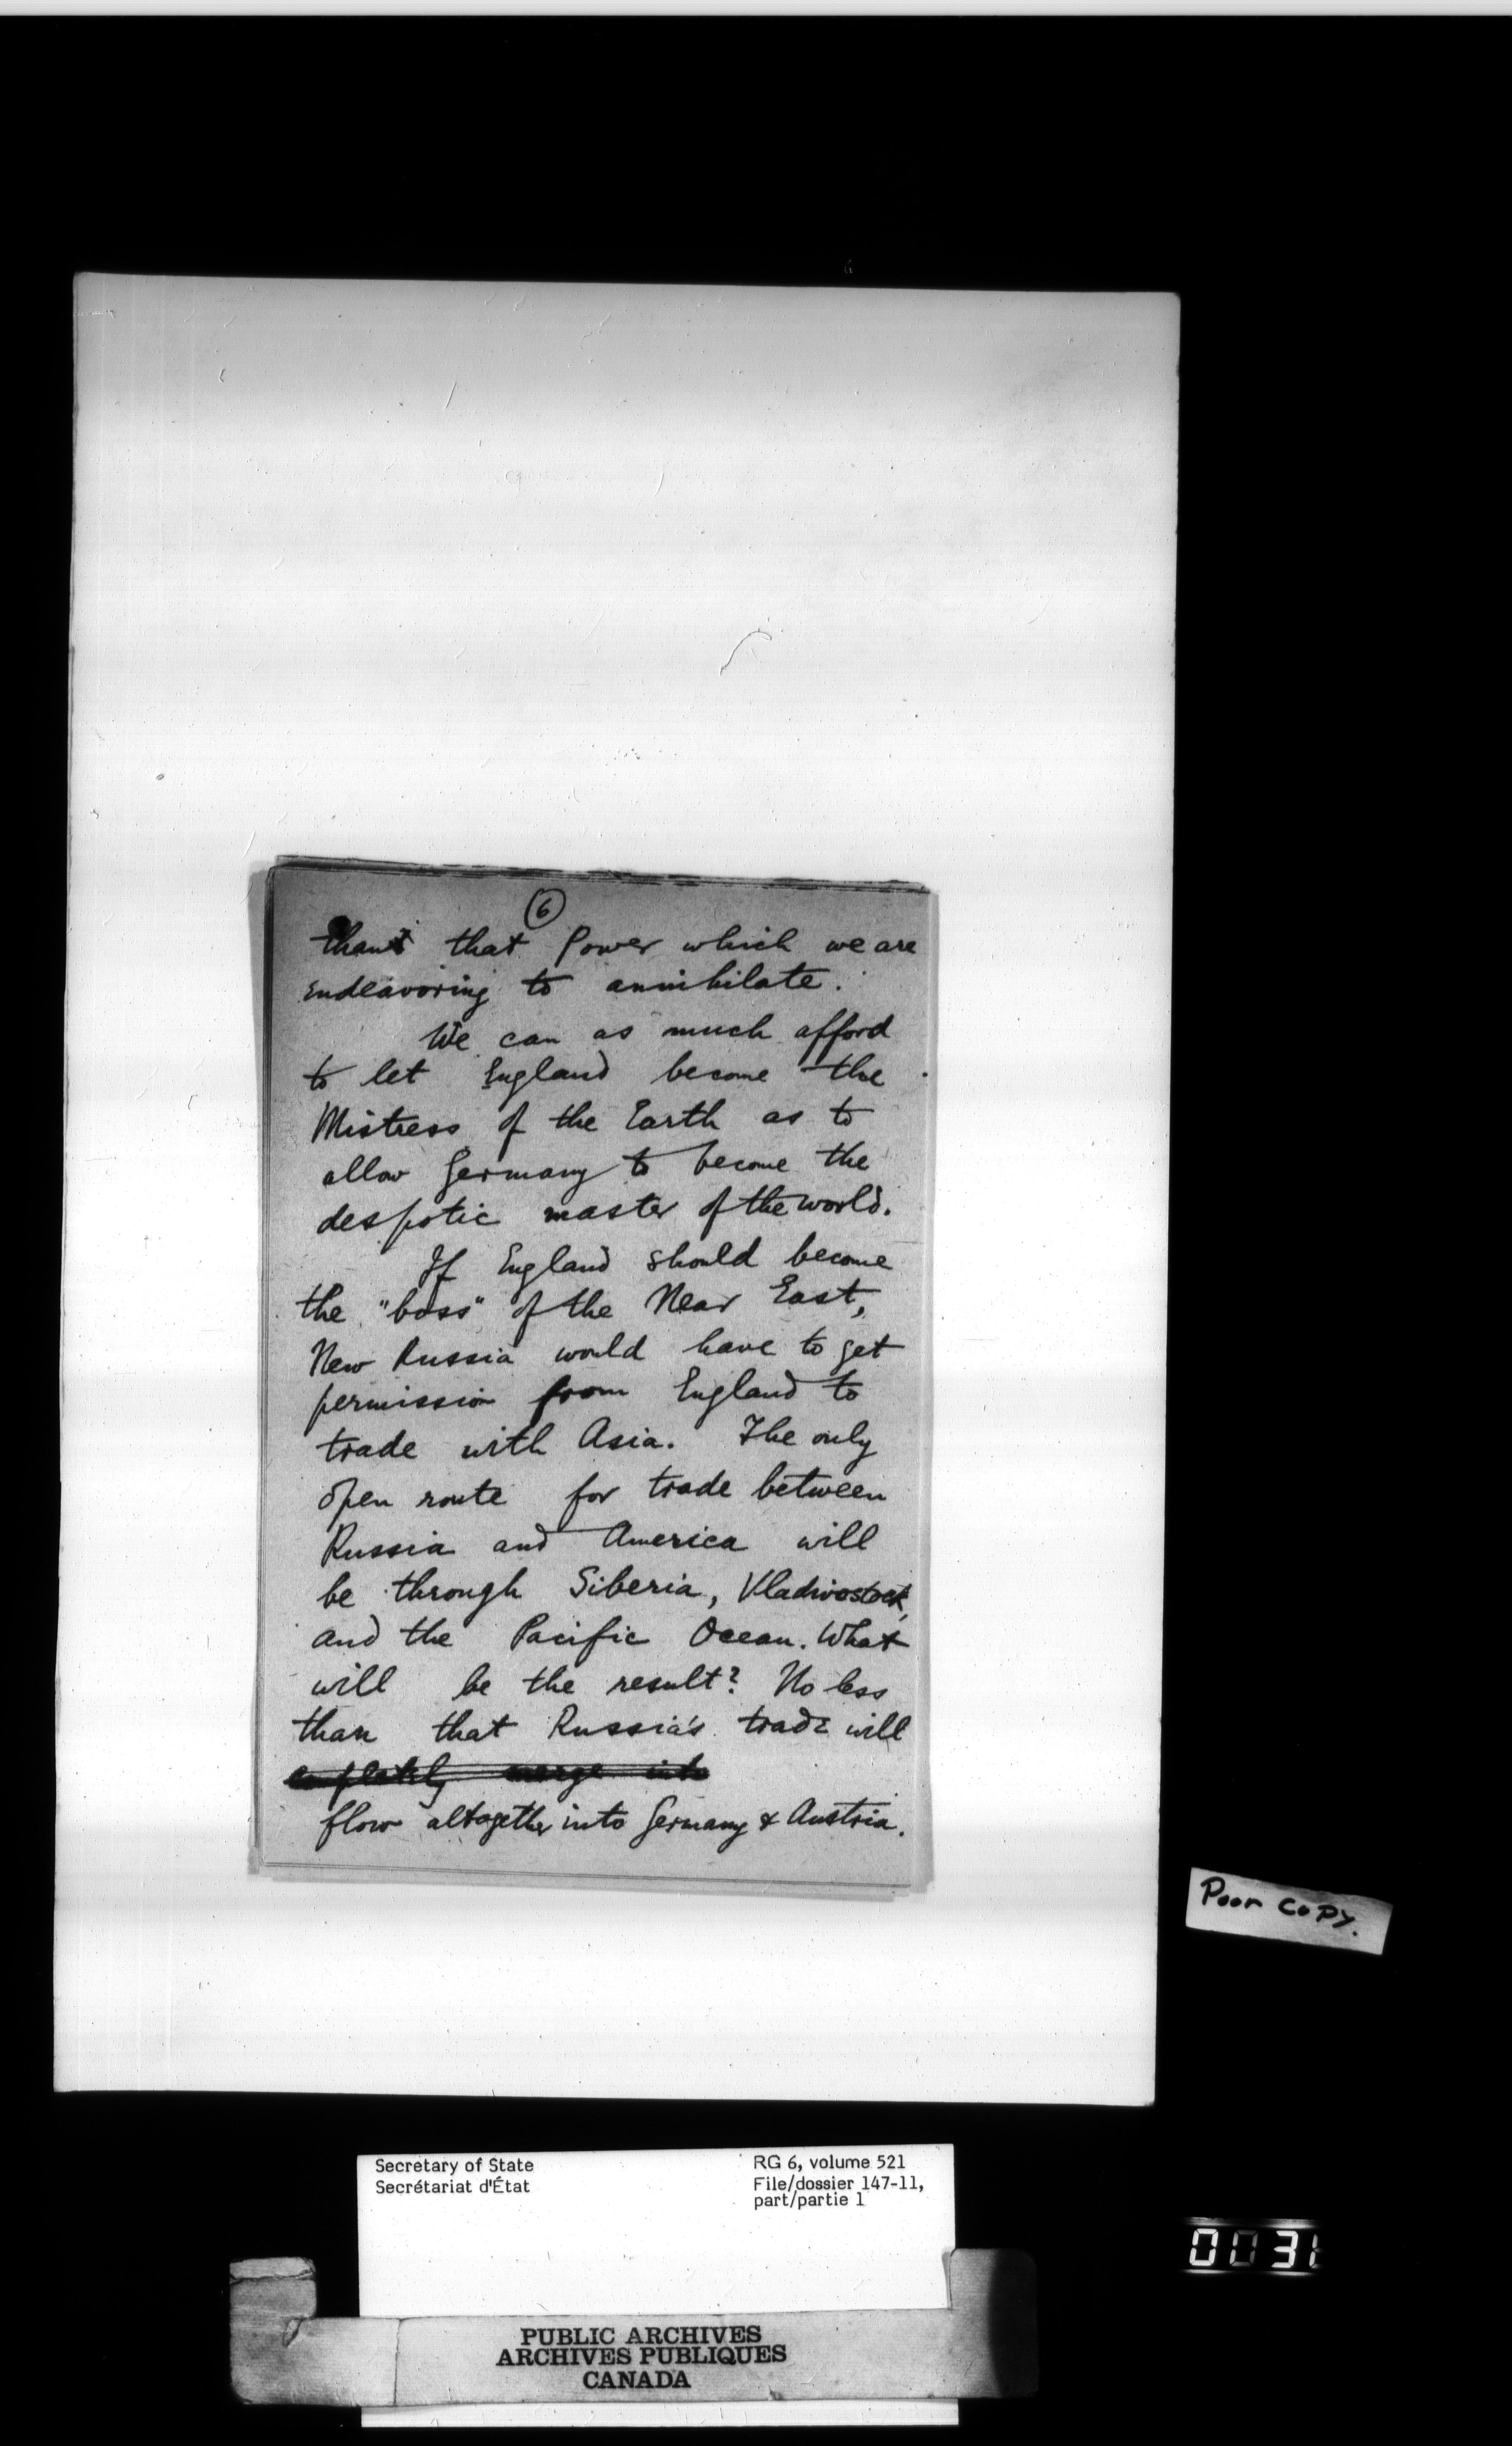 6
than that Power which we are
endeavoring to annihilate.
We can as much afford
to let England become the
Mistress of the Earth as to
allow Germany to become the
despotic master of the world.
If England should become
the "boss" of the Near East,
New Russia would have to get
permission from England to
trade with Asia. The only
open route for trade between
Russia and America will
be through Siberia, Vladivostock,
and the Pacific Ocean. What
will be the result? No less
than that Russia's trade will
completely merge into
flow altogether into Germany & Austria.
Poor COPY.
Secretary of State
Secrétariat d'État
RG 6, volume 521
File/dossier 147-11,
part/partie 1
0031
PUBLIC ARCHIVES
ARCHIVES PUBLIQUES
CANADA